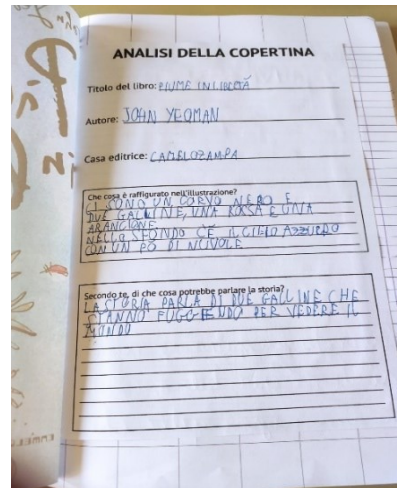 ANALISI DELLA COPERTINA
Titolo del libro: PIUME IN LIBERTÀ
Autore: JOHN YEOMAN
Casa editrice: CAMELOZAMPA
Che cosa è raffigurato nell'illustrazione?
CI SONO UN CORVO NERO E
DUE GALLINE, UNA ROSSA E UNA
ARANCIONE
NELLO SFONDO C'È IL CIELO AZZURRO
CON UN PO DI NUVOLE
Secondo te, di che cosa potrebbe parlare la storia?
LA STORIA PARLA DI DUE GALLINE CHE
STANNO FUGGENDO PER VEDERE IL
MONDO